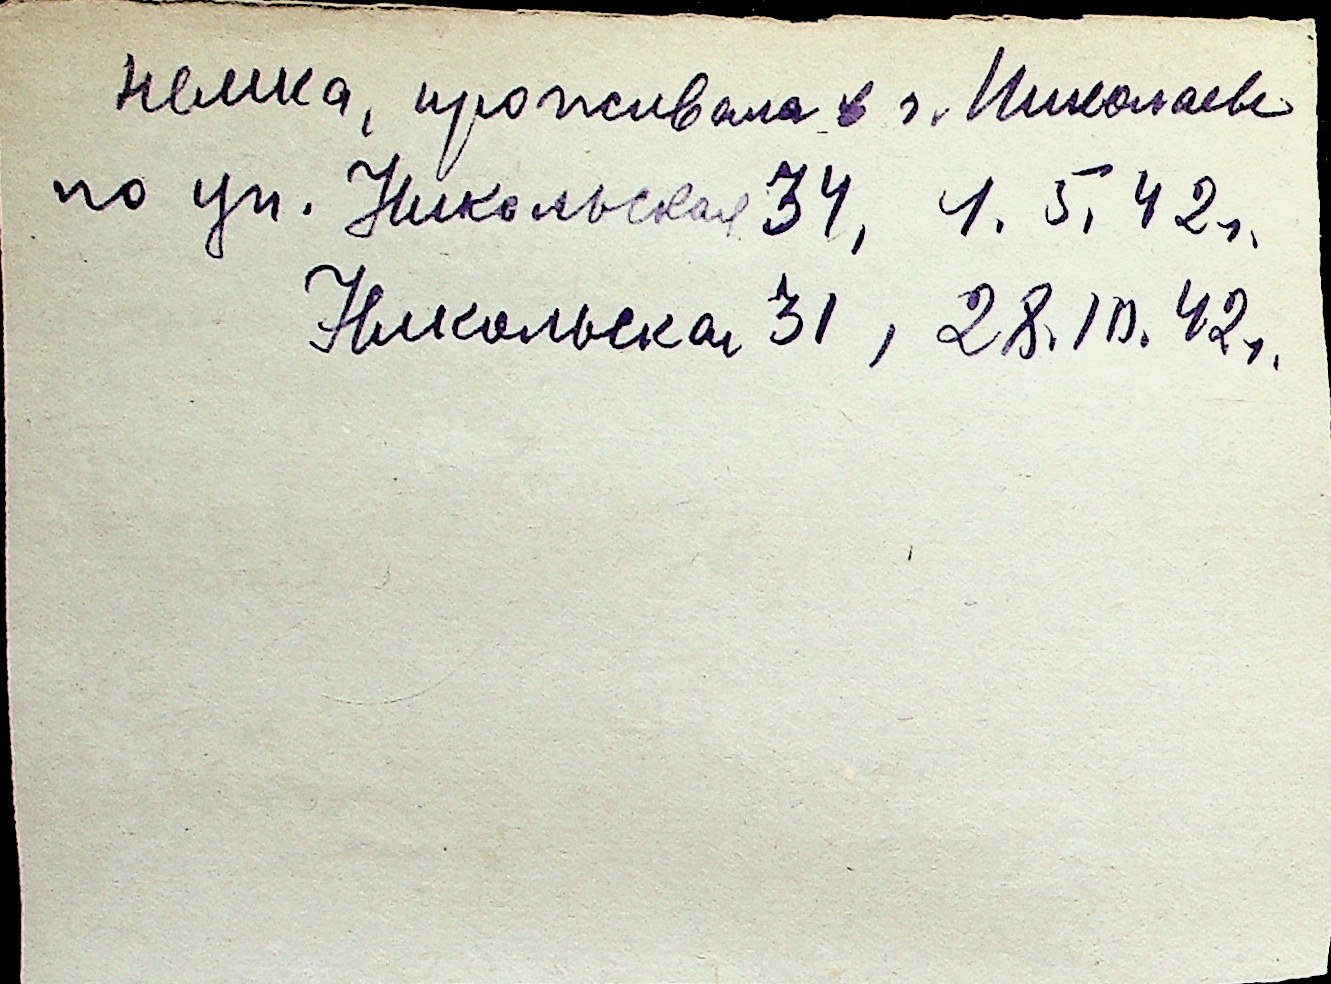 немка, проживала в г. Николаеве
по ул. Никольская 34, 1. 5. 42 г.
Никольская 31, 28. 10. 42 г.